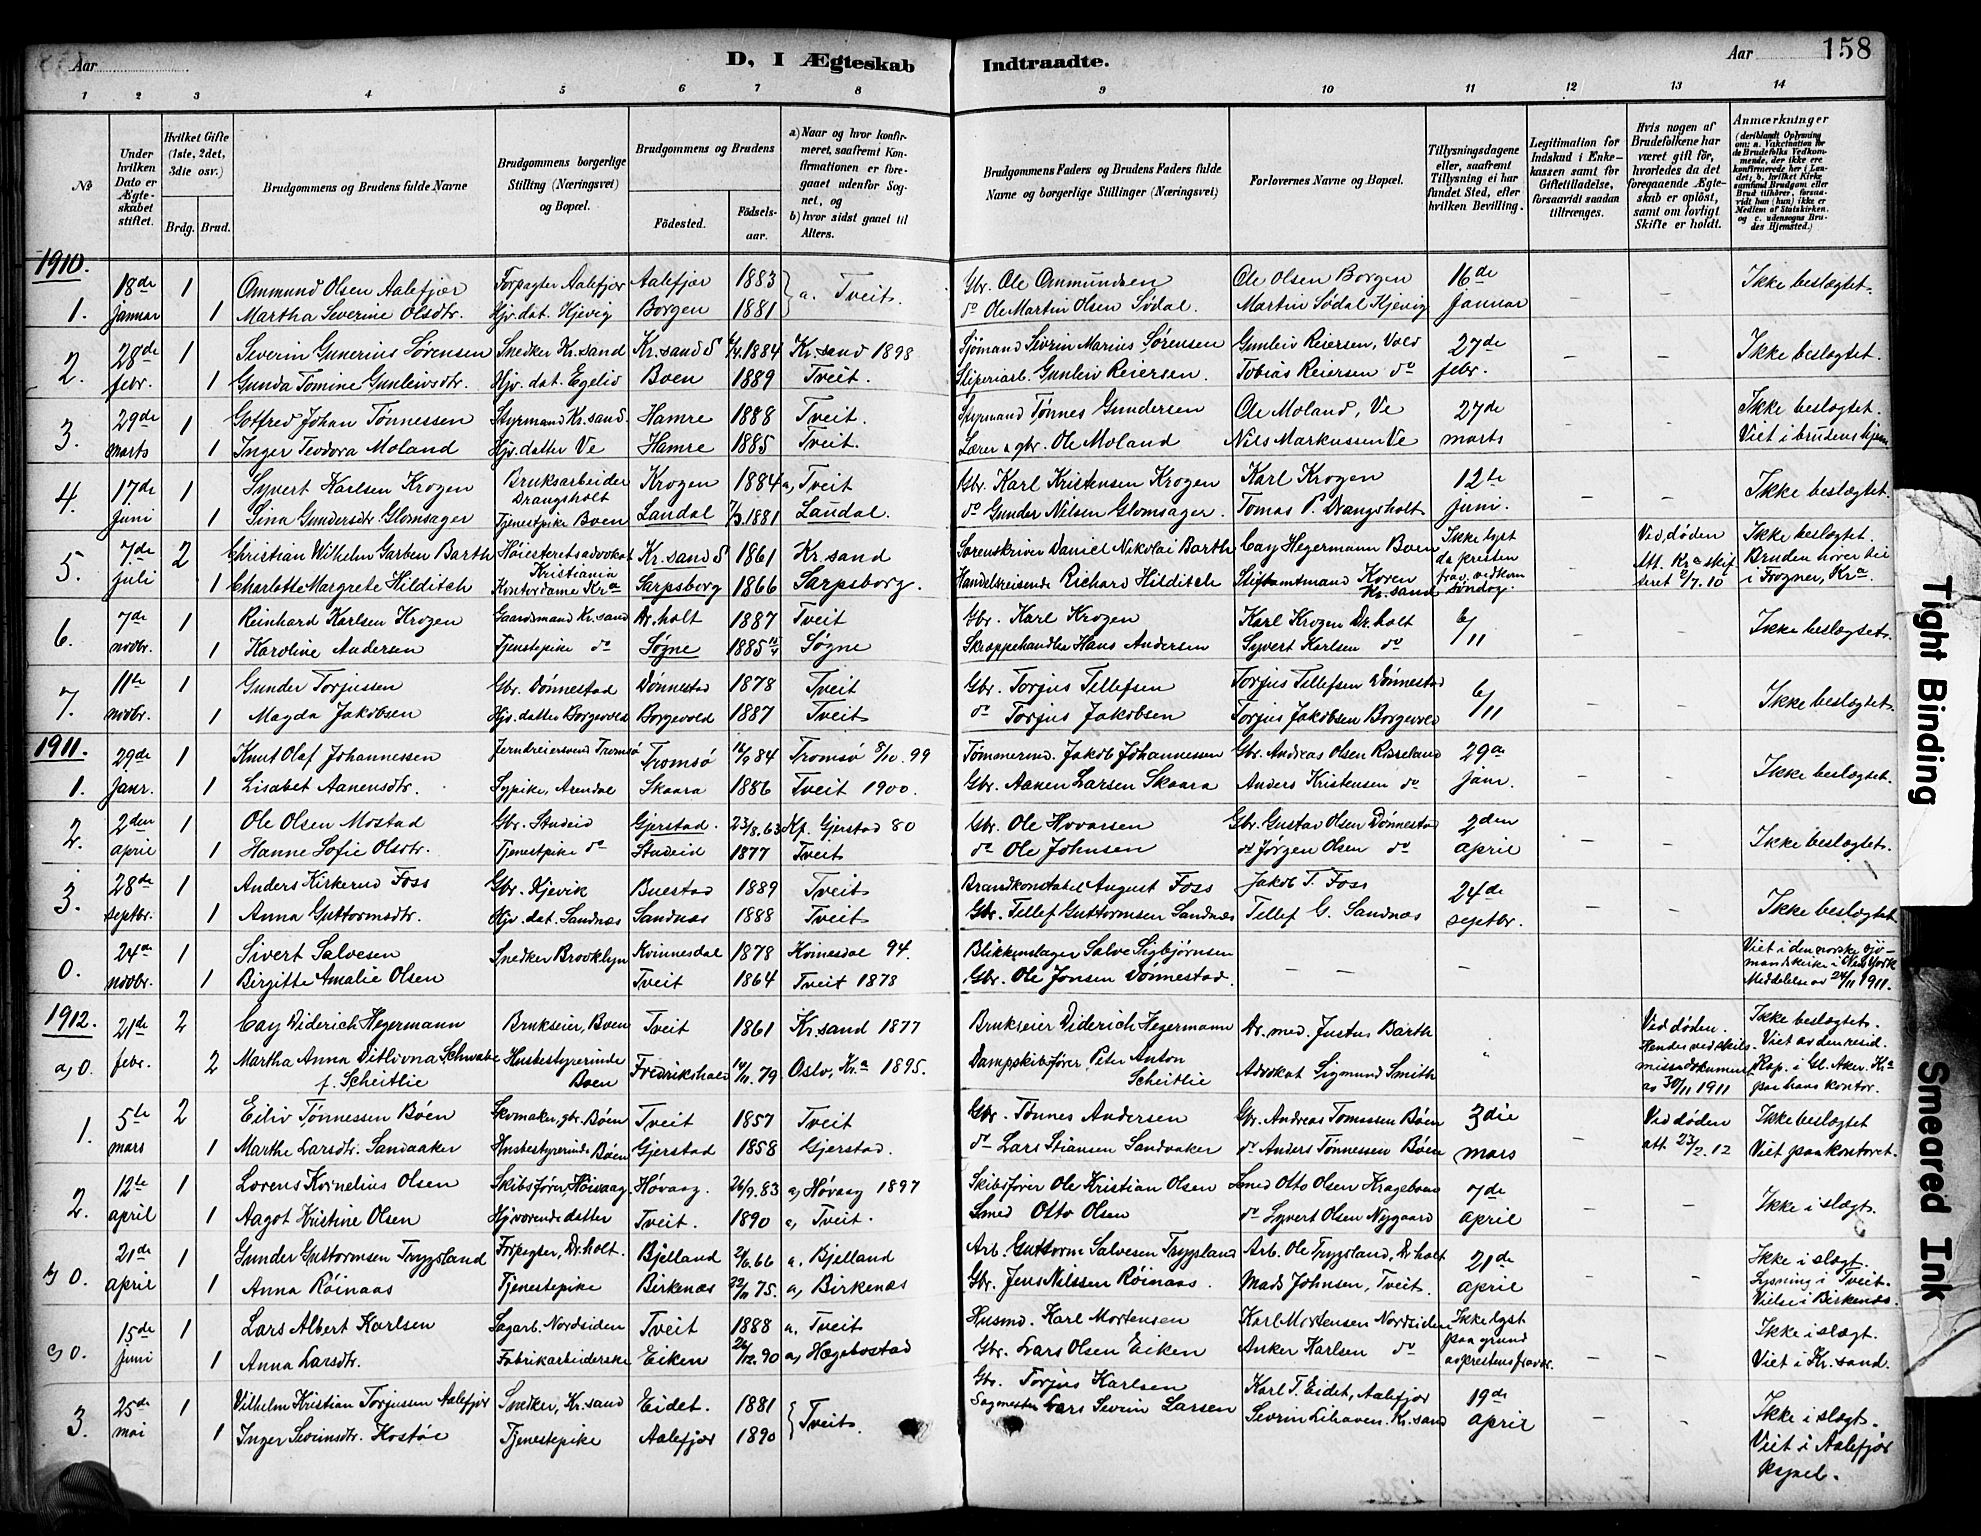 Aar
D, I Ægteskab
Indtraadte.
Aar
158
1 2 3 4 5 6 7 8 9 10 11 12 13 14
No
Under hvilken Dato er Ægteskabet stiftet.
Hvilket Gifte (1ste, 2det, 3die osv.)
Brdg. Brud.
Brudgommens og Brudens fulde Navne
Brudgommens borgerlige Stilling (Næringsvei) og Bopæl.
Brudgommens og Brudens
Födested.
Födsels-aar.
a) Naar og hvor konfirmeret, saafremt Konfirmationen er foregaaet udenfor Sognet, og b) hvor sidst gaaet til Alters.
Brudgommens Faders og Brudens Faders fulde Navne og borgerlige Stillinger (Næringsvei)
Forlovernes Navne og Bopæl.
Tillysningsdagene eller, saafremt Tillysning ei har fundet Sted, efter hvilken Bevilling.
Legitimation for Indskud i Enkekassen samt for Giftetilladelse, forsaavidt saadan tiltrænges.
Hvis nogen af Brudefolkene har været gift för, hvorledes da det foregaaende Ægteskab er oplöst, samt om lovligt Skifte er holdt.
Anmærkninger
1910.
1. 18de januar 1 Ommund Olsen Aalefjær Forpagter Aalefjær Aalefjær 1883 a. Tveit. Gbr. Ole Ommundsen Ole Olsen Borgen 16de januar Ikke beslegtet.
1 Martha Severine Olsdtr. Hjv. dat. Kjevig Borgen 1881 do Ole Martin Olsen Sødal. Martin Sødal Kjevig
2. 28de febr. 1 Severin Gunerius Sørensen Snedker Kr.sand Kr.sand S 1884 Kr.sand 1898 Sjømand Sevrin Marius Sørensen Gunleiv Reiersen, Vold 27de febr. Ikke beslegtet.
1 Gunda Tomine Gunleivsdtr. Hjv. dat. Egelid Boen 1889 Tveit. Gunleiv Reiersen. Tobias Reiersen do
3. 29de marts 1 Gotfred Johan Tønnessen Styrmand Kr.sand. Hamre 1888 Tveit. Styrmand Tønnes Gundersen Ole Moland, Ve 27de marts Ikke beslegtet.
1 Inger Teodora Moland Hjv. datter Ve Hamre 1885 Tveit. Lærer & gbr. Ole Moland Nils Markussen Ve Viet i brudens hjem
4. 17de juni 1 Syvert Karlsen Krogen Bruksarbeider Drangsholt Krogen 1884 a, Tveit Gbr. Karl Kristensen Krogen Karl Krogen 12te juni. Ikke beslegtet.
1 Sina Gundersdtr. Glomsager Tjenestpike Boen Laudal 7/3 1881 Laudal. do Gunder Nilsen Glomsager. Tomas P. Drangsholt
5. 7de juli 2 Christian Wilhelm Garben Barth Høiesteretsadvokat Kristiania Kr.sand S 1861 Kr.sand Sorenskriver Daniel Nikolai Barth Cay Hegermann Boen Ikke lyst da presten frav. vedkom søndag. Ved døden Att. Kra skifteret 2/7. 10 Ikke beslegtet. Bruden hører til i Frogner, Kra.
1 Charlotte Margrete Hilditch Kontordame Kra Sarpsborg 1866 Sarpsborg. Handelsreisende Richard Hilditch Stiftamtmand Koren Kr.sand
6. 7de novbr. 1 Reinhard Karlsen Krogen Gaardsmand Kr.sand Dr.holt 1887 Tveit Gbr. Karl Krogen Karl Krogen Dr.holt 6/11 Ikke beslegtet.
1 Karoline Andersen Tjenestpike do Søgne 1885 Søgne Skrappehandler Hans Andersen Syvert Karlsen do
7. 11te novbr. 1 Gunder Torjussen Gbr. Dønnestad Dønnestad 1878 Tveit Gbr. Torjus Tellefsen Torjus Tellefsen Dønnestad 6/11 Ikke beslegtet.
1 Magda Jakobsen Hjv. datter Borgevold Borgevold 1887 Tveit do Torjus Jakobsen Torjus Jakobsen Borgevold
1911.
1. 29de janr. 1 Knut Olaf Johannessen Jerndreiersvend Tromsø Tromsø 84 Tromsø 8/10. 99 Tømmermd. Jakob Johannessen Gbr. Andreas Olsen Risseland 29de janr. Ikke beslegtet.
1 Lisabet Aanensdtr. Sypike, Arendal Skaara 1886 Tveit 1900. Gbr. Aanen Larsen Skaara Anders Kristensen do
2. 2den april 1 Ole Olsen Mostad Gbr. Studeid Gjerstad. 23/8. 63 Kf. Gjerstad 80 Gbr. Ole Hovarsen Gbr. Gustav Olsen Dønnestad 2den april Ikke beslegtet.
1 Hanne Sofie Olsdtr. Tjenestpike do Studeid 1877 Tveit do Ole Johnsen do Jørgen Olsen do
3. 28de septbr. 1 Anders Kirkerud Foss Gbr. Kjevik Buestad 1889 Tveit Brandkonstabel August Foss Jakob T. Foss 24de septbr. Ikke beslegtet
1 Anna Guttormsdtr. Hjv. dat. Sandnæs Sandnæs 1888 Tveit Gbr. Tellef Guttormsen Sandnæs Tellef G. Sandnæs
0. 24de novbr. 1 Sivert Salvesen Snedker Brooklyn Kvinnesdal 1878 Kvinesdal 94. Blikkenslager Salve Sigbjørnsen Viet i den norske sjømandskirke i New York Meddelelse av 24/11 1911.
1 Birgitte Amalie Olsen Tveit 1864 Tveit 1878 Gbr. Ole Jonsen Dønnestad.
1912.
a, 0. 21de febr. 2 Cay Diderich Hegermann Brukseier, Boen Tveit 1861 Kr.sand 1877 Brukseier Diderich Hegermann Dr. med. Justus Barth Ved døden. Hendes ved skilsmissedokument av 30/11 1911 Ikke beslegtet. Viet av den resid. Kap. i Gl. Aker. Kra paa hans kontor.
2 Martha Anna Ditlovna Schwabe f. Scheitlie Husbestyrerinde Boen Fredrikshald 14/11. 79 Oslo, Kra 1895. Dampskibsfører Peter Anton Scheitlie Advokat Sigmund Smith
1. 5te mars 2 Eiliv Tønnessen Bøen Skomaker, gbr. Bøen Tveit 1857 Tveit Gbr. Tønnes Andersen Gbr. Andreas Tomassen Bøen 3die mars Ved døden att. 23/2. 12 Ikke beslegtet
1 Marthe Larsdtr. Sandaaker Husbestyrerinde Bøen Gjerstad 1858 Gjerstad. do Lars Stiansen Sandaaker do Anders Tønnessen Bøen Viet paa kontoret.
2. 12te april 1 Lorens Kornelius Olsen Skibsfører, Høivaag Høvaag. 26/9. 83 a, Høvaag 1897 Skibsfører Ole Kristian Olsen Smed Otto Olsen Krageboen 7de april Ikke i slegt.
1 Aagot Kristine Olsen Hj.værende datter Tveit. 1890 a, Tveit. Smed Otto Olsen do Syvert Olsen Nygaard
b, 0. 21de april 1 Gunder Guttormsen Trygsland Forpagter, Dr.holt. Bjelland 6. 66 a, Bjelland Arb. Guttorm Salvesen Trygsland Arb. Ole Trygsland, Dr.holt 21de april Ikke i slegt. Lysning i Tveit. Vielse i Birkenæs.
1 Anna Røinaas Tjenestepike Birkenæs 22/11 75. a, Birkenæs Gbr. Jens Nilssen Røinaas. Mads Johnsen, Tveit.
c, 0. 15de juni 1 Lars Albert Karlsen Sagarb. Nordsiden Tveit 1888 a, Tveit Husmd. Karl Mortensen Karl Mortensen Nordsiden Ikke lyst paa grund av prestens fravær. Ikke i slegt. Viet i Kr.sand.
1 Anna Larsdtr. Fabrikarbeiderske Eiken 26/12. 90 a, Hægebostad Gbr. Lars Olsen Eiken Anker Karlsen do
3. 25de mai 1 Vilhelm Kristian Torjussen Aalefjær Snedker, Kr.sand Eidet. 1881 Tveit. Gbr. Torjus Karlsen Karl T. Eidet, Aalefjær 19de april Ikke i slegt.
1 Inger Sevrinsdtr. Kostøe Tjenestepike Aalefjær 1890 Sagmester Lars Sevrin Larsen Sevrin Lihaven. Kr.sand Viet i Aalefjær kapel.
Tight Binding
Smeared Ink